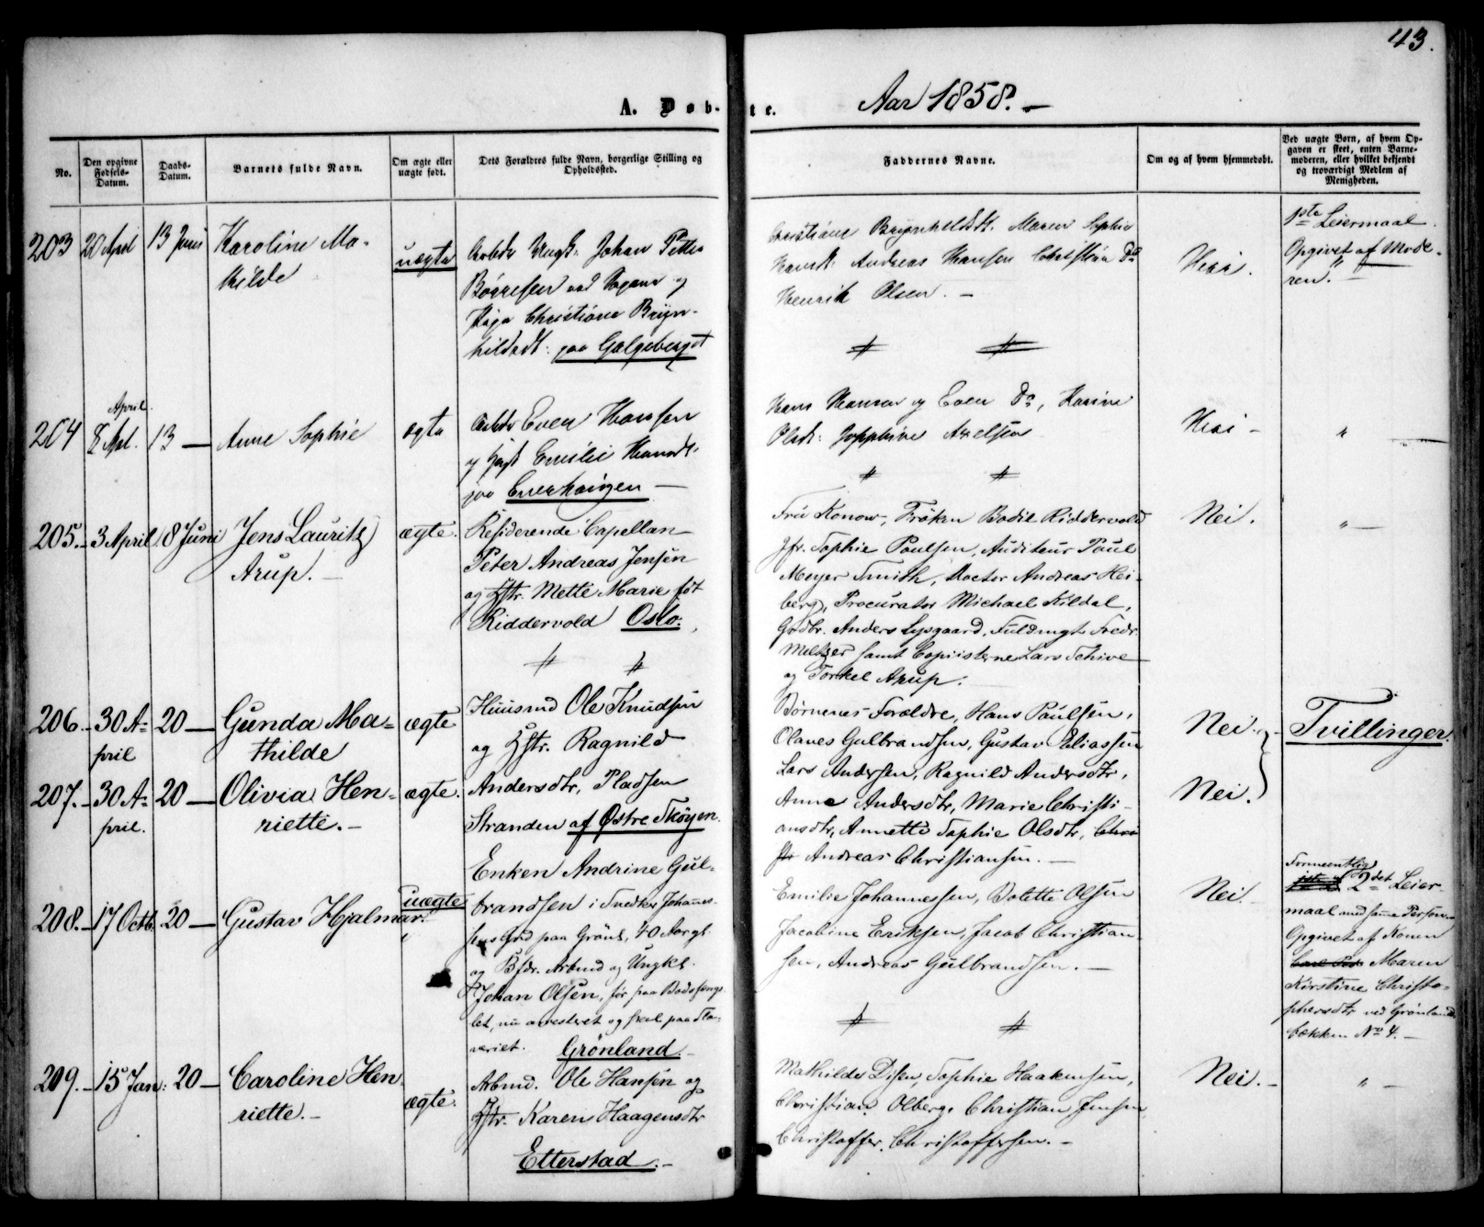 43.
A. Døbte. Aar 1858. –
No.
Den opgivne Fødsels-Datum.
Daabs-Datum.
Barnets fulde Navn.
Om ægte eller uægte født.
Dets Forældres fulde Navn, borgerlige Stilling og Opholdssted.
Faddernes Navne.
Om og af hvem hjemmedøbt.
Ved uægte Børn, af hvem Opgaven er skeet, enten Barnemoderen, eller hvilket bekjendt og troværdigt Medlem af Menigheden.
203 20 April 13 Juni
Karoline Ma-
thilde
uægte
Johan Petter
Børresen ved
Pige Christiane Bryn-
hildsdt: paa Galgeberget
Christiane Brynhildsdt. Maren Sophie
Hansd. Andreas Hansen Christian Do
Henrik Olsen. –
1ste Leiermaal
Opgivet af Mode-
ren. –
204 8 Apl. April 13 —
Anne Sophie
ægte
Arbdr Even Hansen
og
paa Enerhaugen —
Hans Hansen og Even Do, Karine
Olsd: Josephine Axelsen
"
205. – 3 April 18 Juni
Jens Lauritz
Arup. –
ægte.
Residerende Capellan
Peter Andreas Jensen
og Hstr. Mette Marie føt
Riddervold Oslo.
Fru Konow, Frøken Bodil Riddervold
Jfr. Sophie Paulsen, Auditeur Paul
Meyer Smith, Doctor Andreas Hei-
berg, Procurator Michael Kildal,
Grdbr. Anders Lysgaard, Fuldmægt. Fredr.
Meltzer samt Copiisterne Lars Schive
og Torkel Arup.
Nei.
" —
206. – 30 A-
pril
20 —
Gunda Ma-
thilde
ægte
Huusmd Ole Knudsen
og Hstr. Ragnild
Børnenes Forældre, Hans Paulsen,
Olaves Gulbrandsen, Gustav Eliassen
Nei.
Tvillinger.
207. – 30 A-
pril.
20 —
Olivia Hen-
riette. –
ægte.
Andersdtr, Pladsen
Stranden af Østre Skøyen.
Lars Andersen, Ragnild Andersdtr,
Anne Andersdtr, Marie Christi-
ansdtr, Annette Sophie Olsdtr,
Andreas Christiansen. —
Nei.
208. – 17 Octb. 20 —
Gustav Hjalmar.
uægte
Enken Andrine Gul-
brandsen i Snedker Johannes-
sens Grd paa Grønl., 40 Aar gl.
og Bfdr. Arbmd og Ungkl.
Johan Olsen, før paa Bodsfængs-
let, nu arresteret og skal paa Sla-
veriet. Grønland. –
Emilie Johannessen, Bolette Olsen
Jacobine Eriksen, Jacob Christian-
sen, Andreas Gulbrandsen. –
Nei. –
Formeentlig
2det Leier-
maal med samme Person.
Opgivet af Konen
Maren
Kirstine Christo-
phersdtr ved Grønlands
bækken No 4. –
209. – 15 Jan: 20 —
Caroline Hen
riette. –
ægte.
Arbmd. Ole Hansen og
Hstr. Karen Haagensdtr
Etterstad. –
Mathilde Disen, Sophie Haakensen,
Christian Olberg, Christian Jensen
Christoffer Christoffersen. –
Nei. –
" –